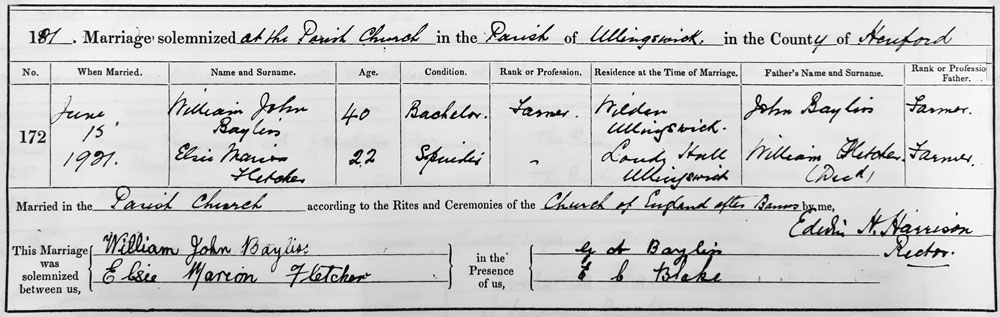 1891. Marriage solemnized at the Parish Church in the Parish of Ullingswick. in the County of Hereford
No. When Married. Name and Surname. Age. Condition. Rank or Profession. Residence at the Time of Marriage. Father's Name and Surname. Rank or Profession Father.
172
June 15 1921.
William John Bayliss 40 Bachelor. Farmer. Wilden Ullingswick. John Bayliss Farmer.
Elsie Marion Fletcher 22 Spinster " Hall Ullingswick William Fletcher (Decd) Farmer.
Married in the Parish Church according to the Rites and Ceremonies of the Church of England after Banns by me,
Edwin H. Harrison
Rector.
This Marriage was solemnized between us,
William John Bayliss
Elsie Marion Fletcher
in the Presence of us,
Bayliss
E C Blake